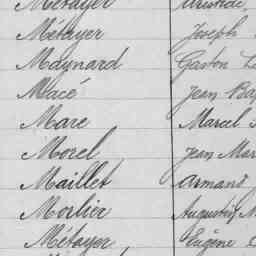 Métayer Aristide,
Métayer Joseph
Maynard Gaston
Macé Jean
Mare Marcel
Morel Jean Mar
Maillet Armand
Morlier Augustin
Métayer, Eugène